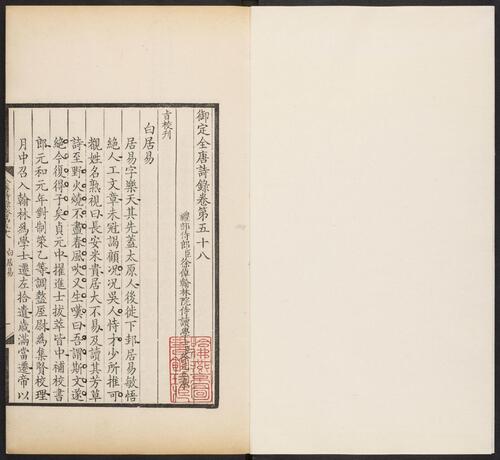 御定全唐詩錄卷第五十八
禮部侍郎臣徐倬翰林院侍讀學士臣
旨校刊
白居易
居易字樂天其先蓋太原人後徙下邽居易敏悟
絶人工文章未冠謁顧况况吳人恃才少所推可
覩姓名熟視曰長安米貴居大不易及讀其芳草
詩至野火燒不盡春風吹又生嘆曰吾謂斯文遂
絶今復得子矣貞元中擢進士拔萃皆中補校書
郎元和元年對制策乙等調盩厔尉為集賢校理
月中召入翰林為學士遷左拾遺歲滿當遷帝以
白居易